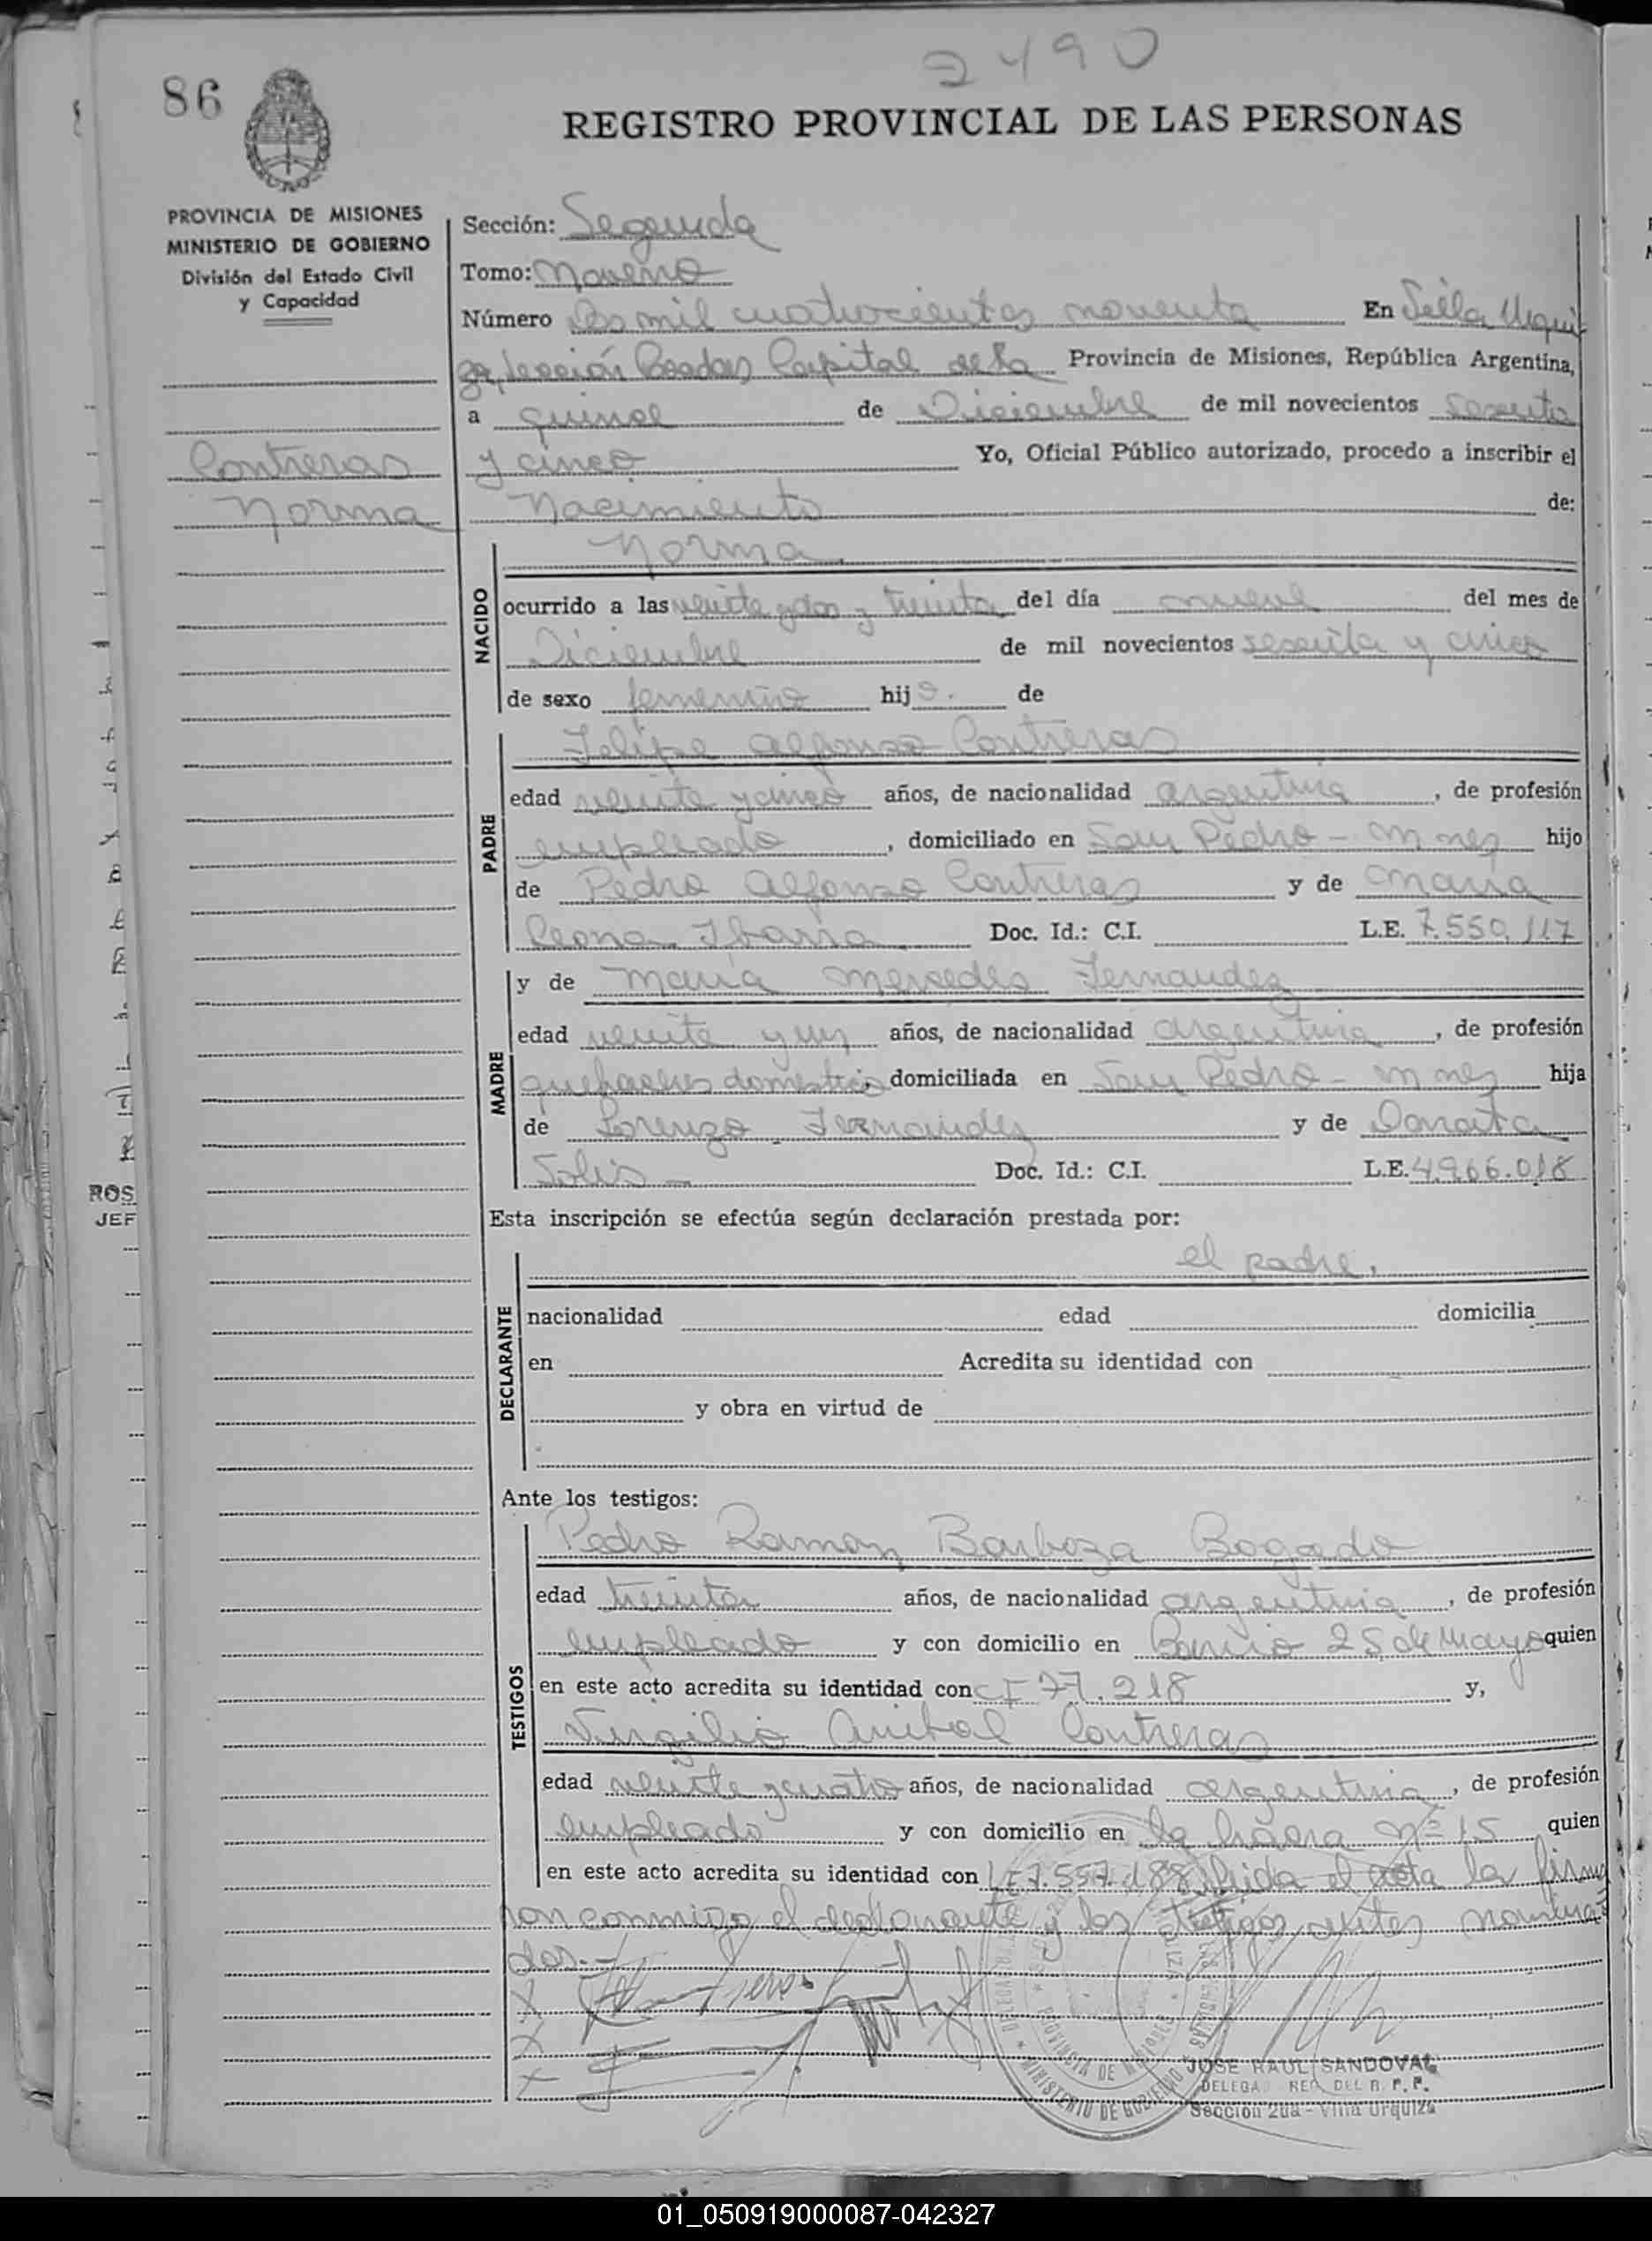 2490
86
REGISTRO PROVINCIAL DE LAS PERSONAS
PROVINCIA DE MISIONES
MINISTERIO DE GOBIERNO
División del Estado Civil
y Capacidad
Contreras
Norma
Sección: Segunda
Tomo: Noveno
Número Dos mil cuatrocientos noventa En Villa Urqui
za, sección Posadas Capital de la Provincia de Misiones, República Argentina,
a quince de Diciembre de mil novecientos sesenta
y cinco Yo, Oficial Público autorizado, procedo a inscribir el
Nacimiento de:
NACIDO
Norma
ocurrido a las veinte y dos y treinta del día nueve del mes de
Diciembre de mil novecientos sesenta y cinco
de sexo femenino hija de
PADRE
Felipe Alfonso Contreras
edad veinte y cinco años, de nacionalidad argentina, de profesión
empleado, domiciliado en San Pedro - Mnes hijo
de Pedro Alfonso Contreras y de Maria
Ibarra Doc. Id.: C.I. L.E. 7.550.117
MADRE
y de Maria Mercedes Fernandez
edad veinte y un años, de nacionalidad argentina, de profesión
quehaceres domestico, domiciliada en San Pedro - Mnes hija
de Lorenzo Fernandez y de Donata
Solis - Doc. Id.: C.I. L.E. 4.966.018
Esta inscripción se efectúa según declaración prestada por:
DECLARANTE
el padre.
nacionalidad edad domicilia
en Acredita su identidad con
y obra en virtud de
Ante los testigos:
TESTIGOS
Pedro Ramon Barboza Bogado
edad treinta años, de nacionalidad argentina, de profesión
empleado y con domicilio en Barrio 25 de Mayo quien
en este acto acredita su identidad con CI 77.218 y,
Virgilio Anibal Contreras
edad veinte y cuatro años, de nacionalidad argentina, de profesión
empleado y con domicilio en la Nº 15 quien
en este acto acredita su identidad con LE 7.557.188 leida el acta la firma
ron conmigo el declarante y los testigos antes nomina
dos.-
JOSE RAUL SANDOVAL
DELEGA REG DEL R. P. P.
Sección 2da - Villa Urquiza
MINISTERIO DE GOBIERNO
PROVINCIA DE MISIONES
ROS
JEF
01_050919000087-042327